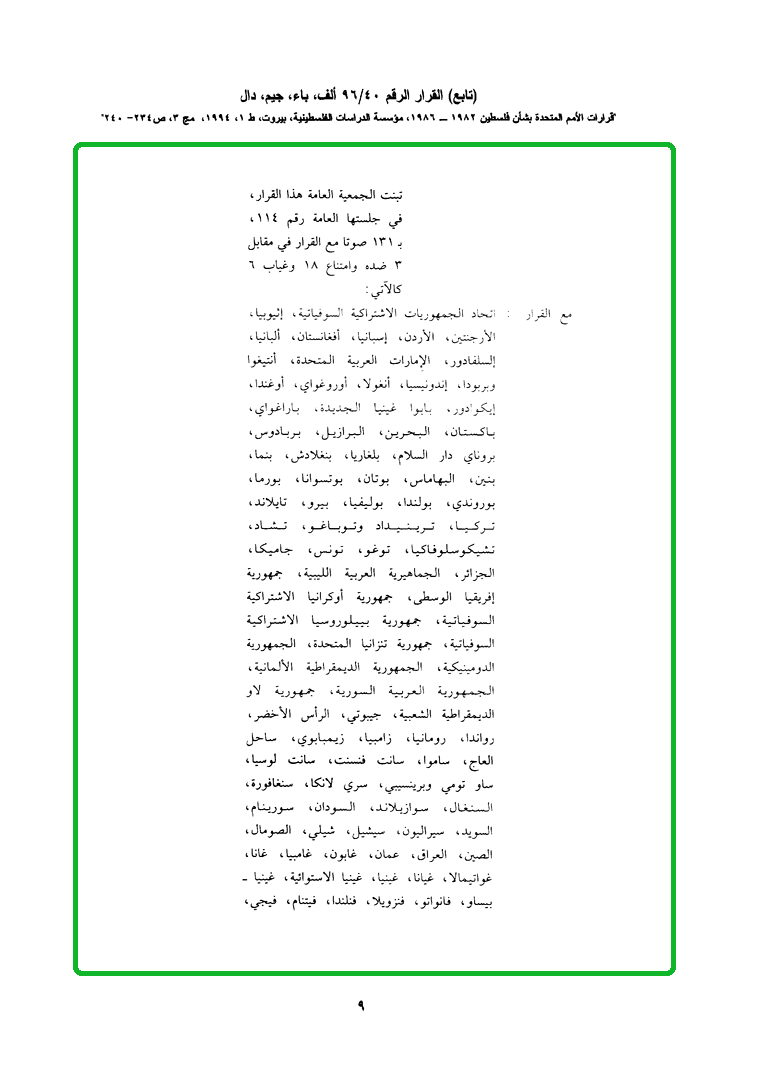 (تابع) القرار الرقم ٩٦/٤٠ ألف، باء، جيم، دال
"قرارات الأمم المتحدة بشأن فلسطين ١٩٨٢ ــ ١٩٨٦، مؤسسة الدراسات الفلسطينية، بيروت، ط ١، ١٩٩٤، مج ٣، ص٢٣٤- ٢٤٠"
تبنت الجمعية العامة هذا القرار،
في جلستها العامة رقم ١١٤،
بـ ١٣١ صوتا مع القرار في مقابل
٣ ضده وامتناع ١٨ وغياب ٦
كالآتي:
مع القرار : اتحاد الجمهوريات الاشتراكية السوفياتية، إثيوبيا،
الأرجنتين، الأردن، إسبانيا، أفغانستان، ألبانيا،
إلسلفادور، الإمارات العربية المتحدة، أنتيغوا
وبربودا، إندونيسيا، أنغولا، أوروغواي، أوغندا،
إيكوادور، بابوا غينيا الجديدة، باراغواي،
باكستان، البحرين، البرازيل، بربادوس،
بروناي دار السلام، بلغاريا، بنغلادش، بنما،
بنين، البهاماس، بوتان، بوتسوانا، بورما،
بوروندي، بولندا، بوليفيا، بيرو، تايلاند،
تركيا، ترينيداد وتوباغو، تشاد،
تشيكوسلوفاكيا، توغو، تونس، جاميكا،
الجزائر، الجماهيرية العربية الليبية، جمهورية
إفريقيا الوسطى، جمهورية أوكرانيا الاشتراكية
السوفياتية، جمهورية بييلوروسيا الاشتراكية
السوفياتية، جمهورية تنزانيا المتحدة، الجمهورية
الدومينيكية، الجمهورية الديمقراطية الألمانية،
الجمهورية العربية السورية، جمهورية لاو
الديمقراطية الشعبية، جيبوتي، الرأس الأخضر،
رواندا، رومانيا، زامبيا، زيمبابوي، ساحل
العاج، ساموا، سانت فنسنت، سانت لوسيا،
ساو تومي وبرينسيبي، سري لانكا، سنغافورة،
السنغال، سوازيلاند، السودان، سورينام،
السويد، سيراليون، سيشيل، شيلي، الصومال،
الصين، العراق، عمان، غابون، غامبيا، غانا،
غواتيمالا، غيانا، غينيا، غينيا الاستوائية، غينيا ـ
بيساو، فانواتو، فنزويلا، فنلندا، فيتنام، فيجي،
٩